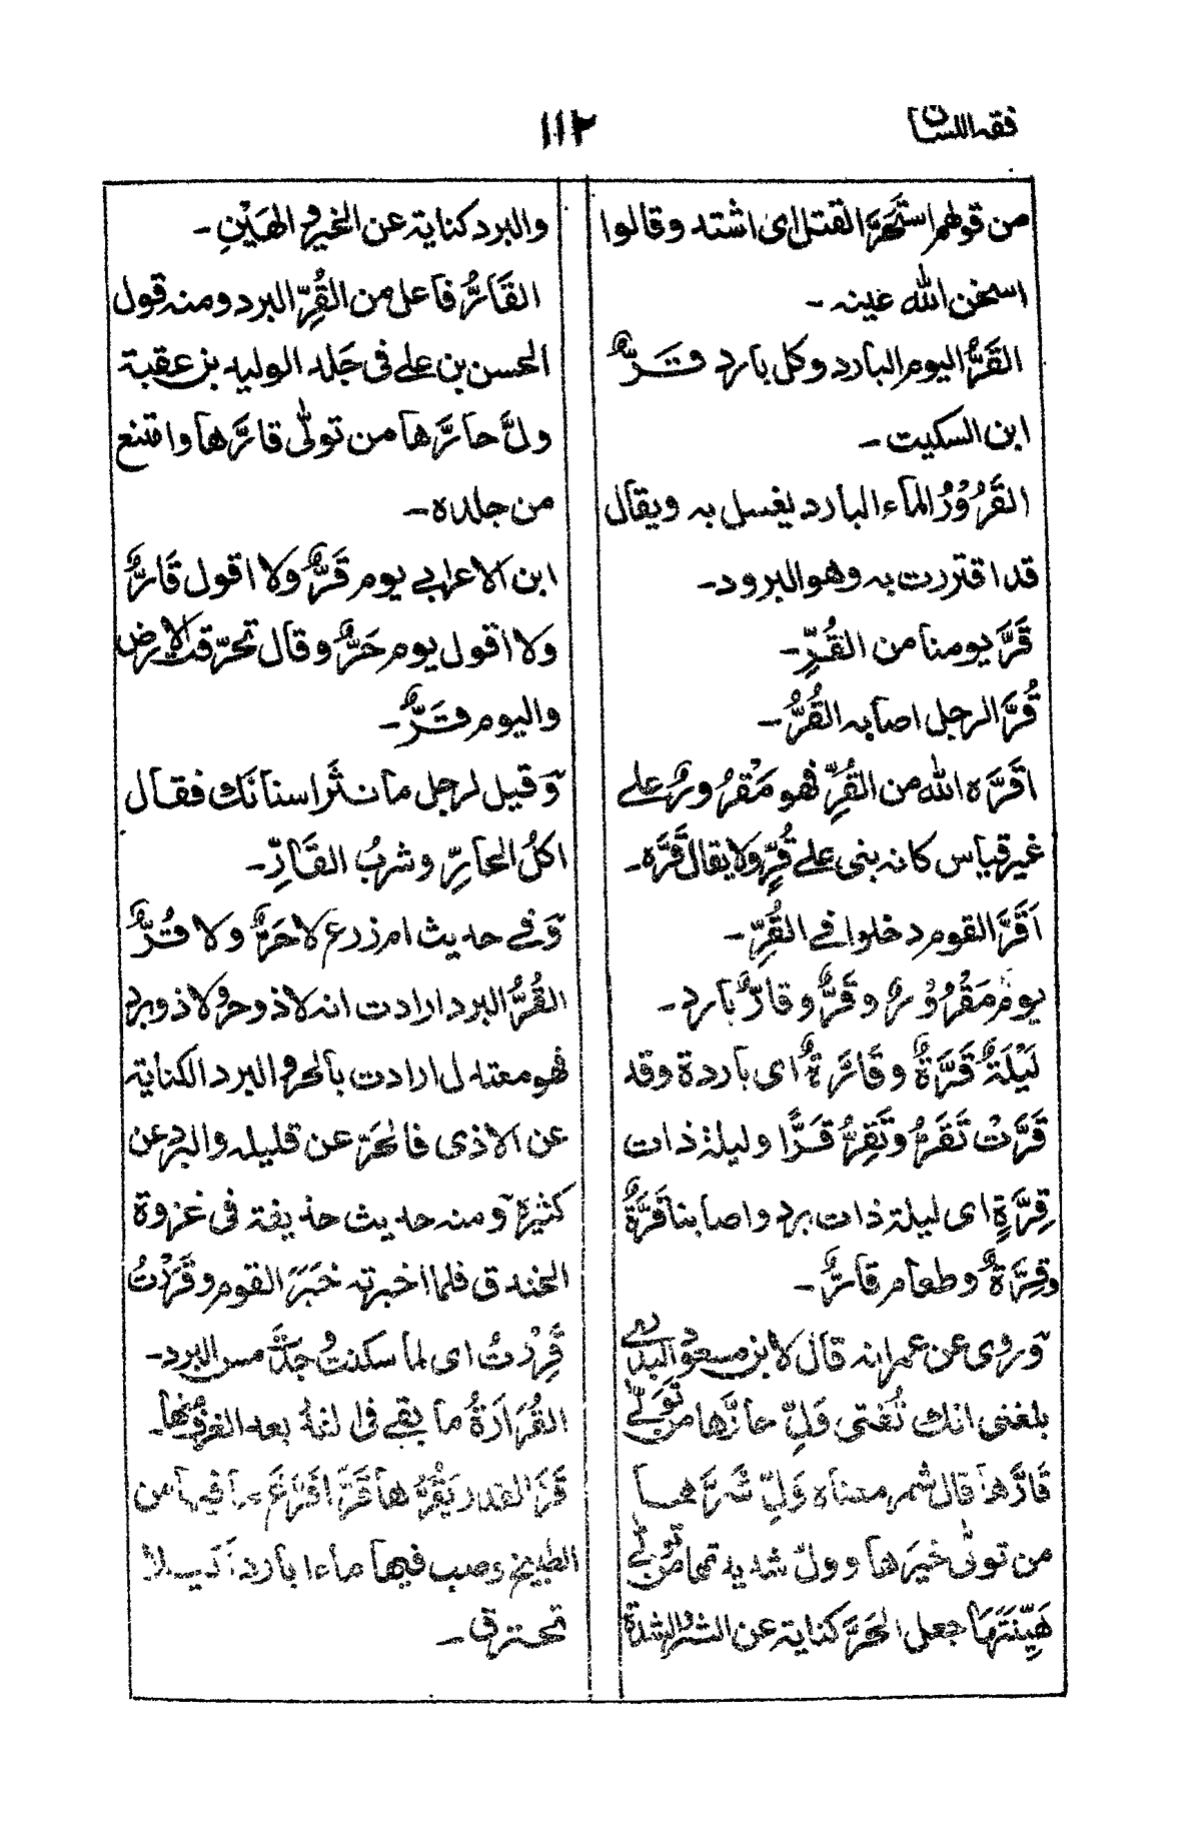 فقه اللسان
١١٢
من قولهم استَحَرَّ القتل ای اشتد وقالوا
اسخن الله عينه ـ
القَرُّ اليوم البارد وكل بارد قَرٌّ
ابن السكيت ـ
القَرُوْرُ الماء البارد يغسل به ويقال
قد اقتررت به وهو البرود ـ
قَرَّ يومنا من القُرِّ ـ
قُرَّ الرجل اصابه القُرُّ ـ
اقرَّه الله من القُرِّ فهو مَقْرُورٌ علے
غير قياس كانه بنى علے قُرٍّ ولا يقال قَرَّه ـ
اَقَرَّ القوم دخلوا فے القُرِّ ـ
يوم مَقْرُوْرٌ وقَرٌّ وقارٌّ بارد ـ
لَيْلَةٌ قَرَّةٌ وقَارَّةٌ ای باردة وقد
قَرَّتْ تَقَرُّ وتَقِرُّ قَرًّا وليلة ذات
قِرَّةٍ ای ليلة ذات برد واصابنا قَرَّةٌ
وقِرَّةٌ وطعام قارٌّ ـ
وروی عن عمر انه قال لابن مسعود البدری
بلغنی انك تُفتی وَلِّ حارَّها من تَوَلّٰے
قَارَّها قال شمر معناه وَلِّ شَرَّها
من تولّٰی خيرَها وولِّ شديدتها من تولّٰے
هَيِّنَتَهَا جعل الحَرَّ كناية عن الشر والشدة
والبرد كناية عن الخير والهَيْنِ ـ
القَارُّ فاعل من القُرِّ البرد ومنه قول
الحسن بن علے فی جَلد الوليد بن عقبة
ولِّ حارَّها من تولّٰی قارَّها وامتنع
من جلده ـ
ابن الاعرابے يوم قَرٌّ ولا اقول قَارٌّ
ولا اقول يوم حَرٌّ وقال تحرّقت الارض
واليوم قَرٌّ ـ
وقيل لرجل ما نَثَر اسنانَك فقال
اكلُ الحارِّ وشربُ القَارِّ ـ
وفے حديث ام زرع لا حَرٌّ ولا قُرٌّ
القُرُّ البرد ارادت انه لا ذو حر ولا ذو برد
فهو معتدل ارادت بالحر والبرد الكناية
عن الاذى فالحَرّ عن قليله والبرد عن
كثيرة ومنه حديث حذيفة فی غزوة
الخندق فلما اخبرته خَبَرَ القوم وقَرَرْتُ
قَرِرْتُ ای لما سكنتُ وجدتُّ مس البرد ـ
القُرَارَةُ ما بقے فی القدر بعد الغرف منها ـ
قَرَّ القدر يَقُرُّها قَرًّا فَرَّغَ ما فيها من
الطبيخ وصب فيها ماء باردا كيلا
تحترق ـ